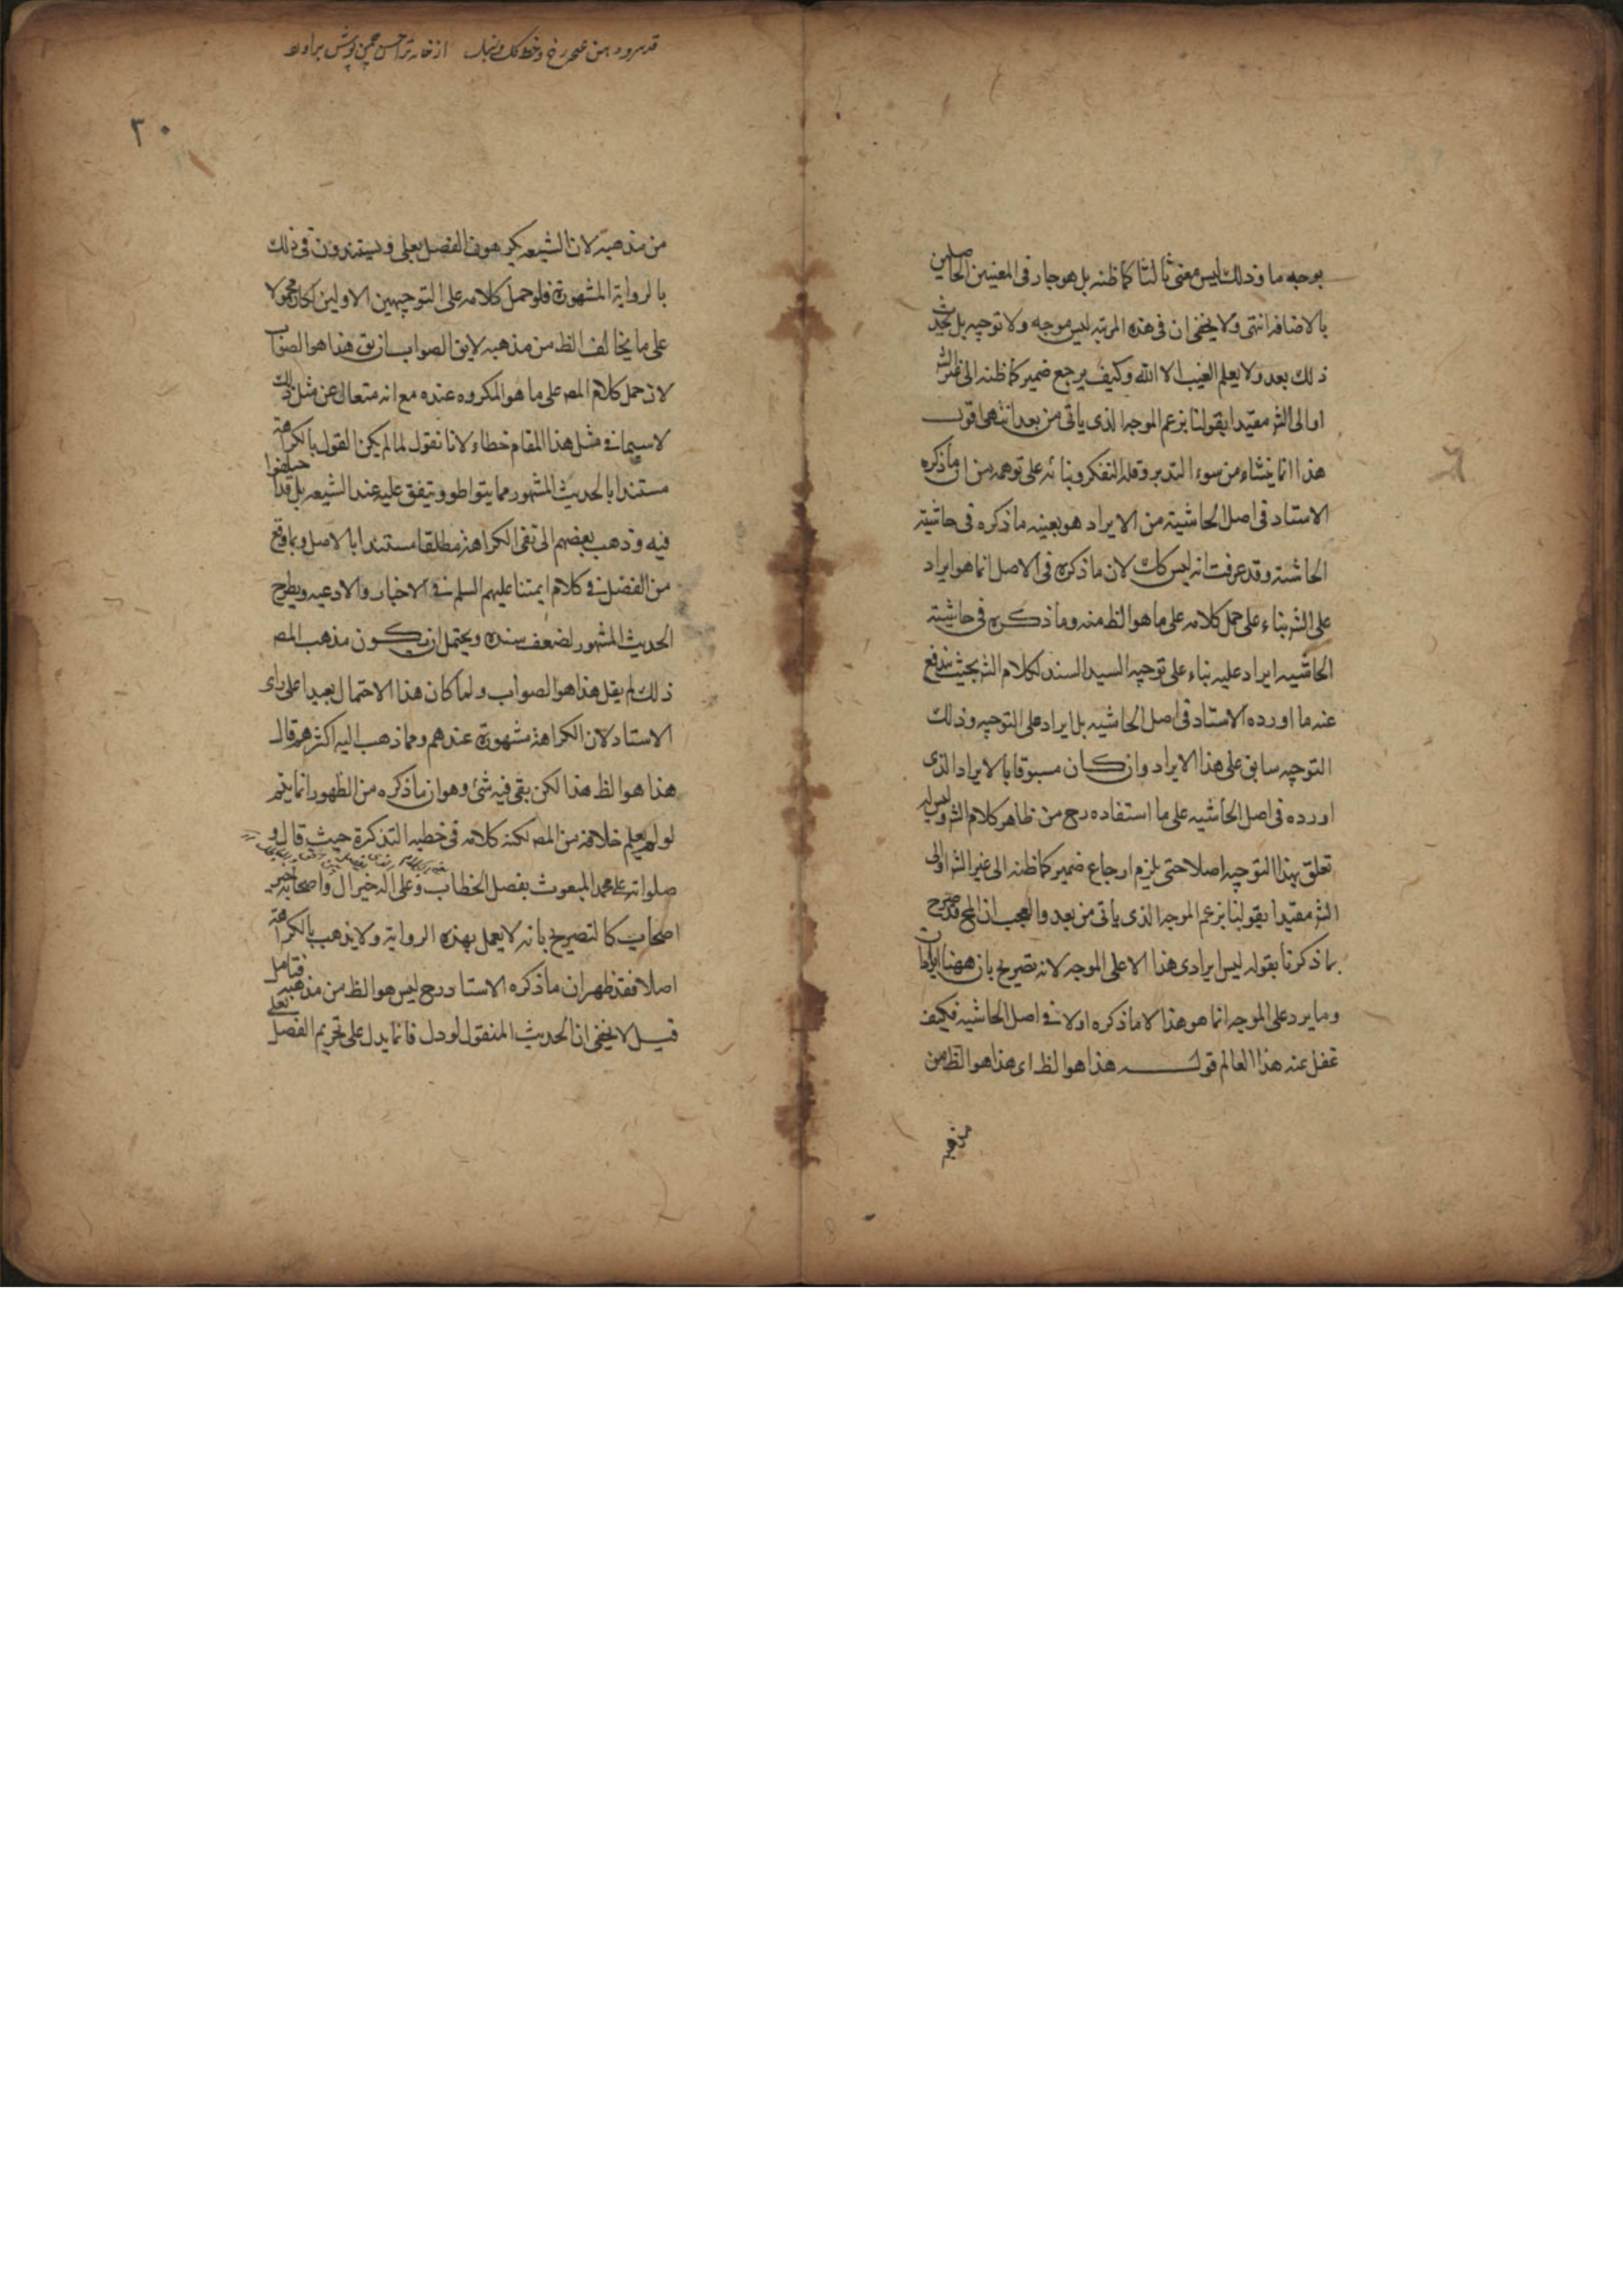 بوجه ما وذلك ليس معنى ثالثا كما ظنه بل هو جار في المعنيين الحاصلين
بالاضافه انتهى ولا يخفى ان في هذه المرتبه ليس موجه ولا توجيه بل يحدث
ذلك بعد ولا يعلم الغيب الا الله وكيف يرجع ضمير كما ظنه الى غير الش
او الى الش مقيدا بقولنا بزعم الموجه الذي ياتي من بعد انتهى قوله
هذا انما ينشاء من سوء التدبر وقله التفكر وبنائه على توهمه من ان ما ذكره
الاستاد في اصل الحاشيته من الايراد هو بعينه ما ذكره في حاشيته
الحاشيته وقد عرفت انه ليس كك لان ما ذكره في الاصل انما هو ايراد
على الش بناء على حمل كلامه على ما هو الظ منه وما ذكره في حاشيته
الحاشيه ايراد عليه بناء على توجيه السيد السند لكلام الش بحيث يندفع
عنه ما اورده الاستاد في اصل الحاشيه بل ايراد على التوجيه وذلك
التوجيه سابق على هذا الايراد وان كان مسبوقا بالايراد الذي
اورده في اصل الحاشيه على ما استفاده رح من ظاهر كلام الش وليس له
تعلق بهذا التوجيه اصلا حتى يلزم ارجاع ضمير كما ظنه الى غير الش او الى
الش مقيدا بقولنا بزعم الموجه الذي ياتي من بعد والعجب ان المح قد صرح
بما ذكرنا بقوله ليس ايرادى هذا الا على الموجه لانه تصريح بان ههنا ايرادان
وما يرد على الموجه انما هو هذا لا ما ذكره اولا في اصل الحاشيه فكيف
غفل عنه هذا العالم قوله هذا هو الظ اى هذا هو الظ من
من مذهبه
٣٠
من مذهبه لان الشيعه يكرهون الفصل بعلى ويستندون في ذلك
بالرواية المشهورة فلو حمل كلامه على التوجيهين الاولين لكان محمولا
على ما يخالف الظ من مذهبه لايق الصواب ان يق هذا هو الصواب
لان حمل كلام المص على ما هو المكروه عنده مع انه متعال عن مثل ذلك
لا سيما في مثل هذا المقام خطاء لانا نقول لما لم يكن القول بالكراهة
مستندا بالحديث المشهور مما يتواطؤ ويتفق عليه عند الشيعه بل قد اختلفوا
فيه وذهب بعضهم الى نفى الكراهة مطلقا مستندا بالاصل وبما وقع
من الفصل في كلام ايمتنا عليهم السلم في الاخبار والادعيه ويطرح
الحديث المشهور لضعف سنده ويحتمل ان يكون مذهب المص
ذلك لم يقل هذا هو الصواب ولما كان هذا الاحتمال بعيدا على راى
الاستاد لان الكراهة مشهورة عندهم ومما ذهب اليه اكثرهم قال
هذا هو الظ هذا لكن بقى فيه شئ وهو ان ما ذكره من الظهور انما يتم
لو لم يعلم خلافه من المص لكنه كلامه في خطبه التذكرة حيث قال و
صلواته على محمد المبعوث بفصل الخطاب وعلى اله خير ال واصحابه خير
اصحاب كالتصريح بانه لا يعمل بهذه الرواية ولا يذهب بالكراهة
اصلا فقد ظهر ان ما ذكره الاستاد رح ليس هو الظ من مذهبه فتامل
قيل لا يخفى ان الحديث المنقول لو دل فانما يدل على تحريم الفصل بعلى